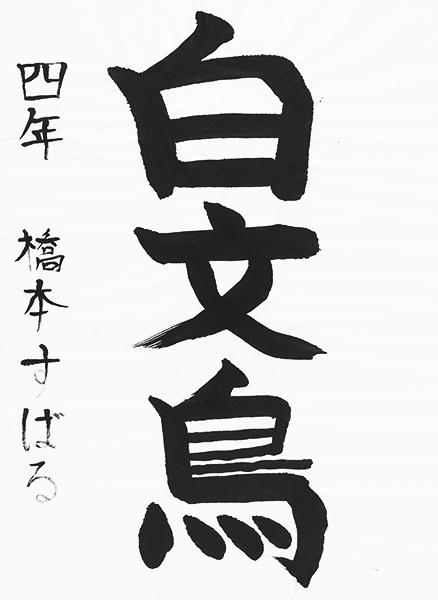 白文鳥
四年 橋本すばる